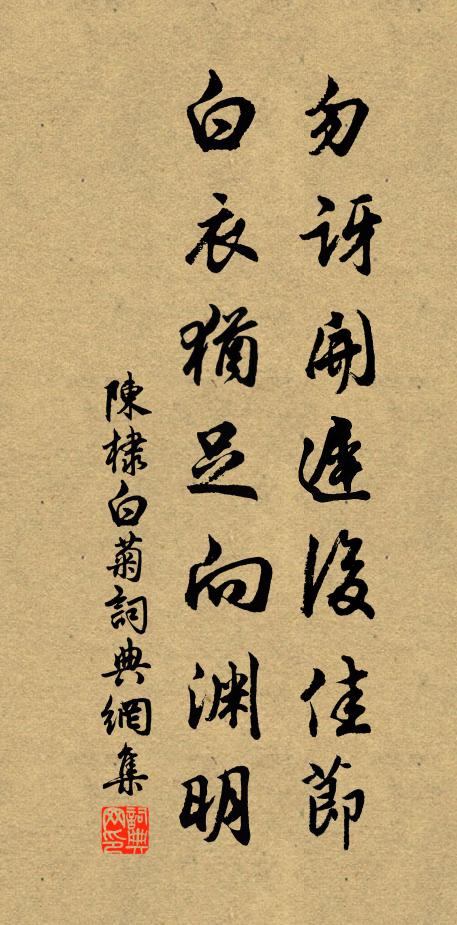 勿訝開遲後佳節
白衣猶足向渊明
陳棣白菊詞典網集
詞典网印